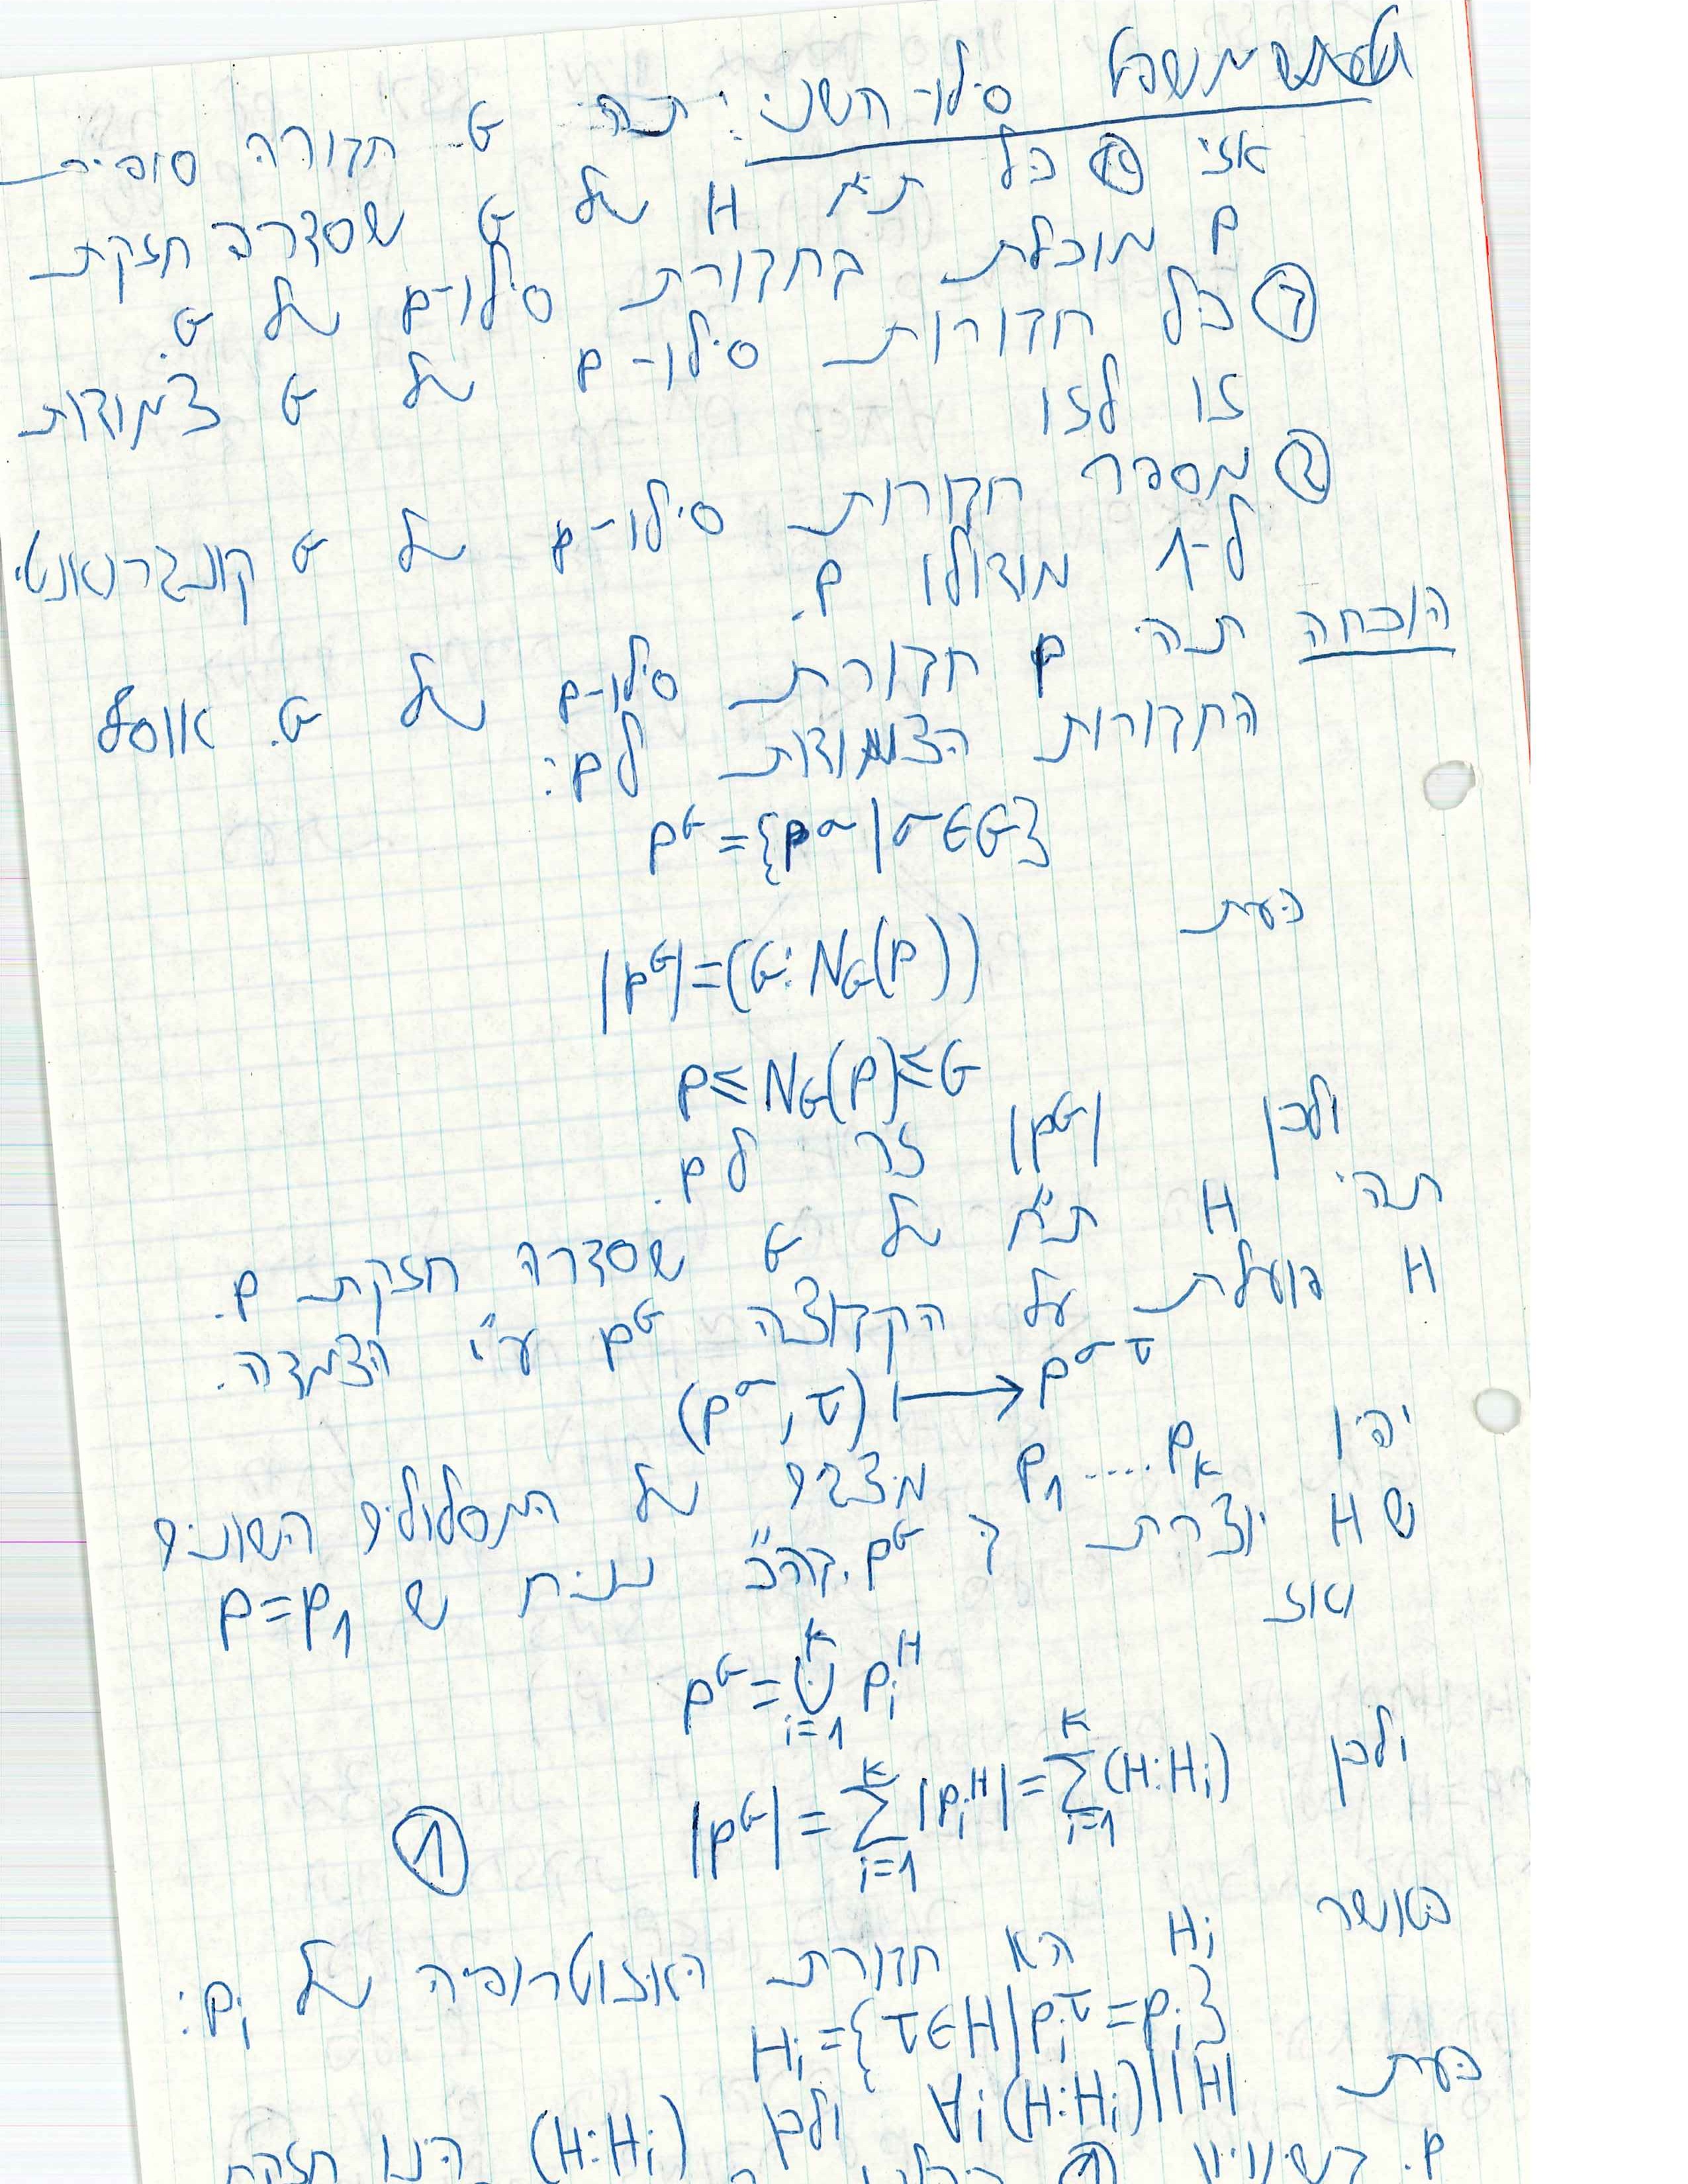 משפט סילו השני: תהי G חבורה סופית
אזי (א) כל ת"ח H של G שסדרה חזקת
p מוכלת בחבורת סילו-p של G.
(ב) כל חבורות סילו-p של G צמודות
זו לזו
(ג) מספר חבורות סילו-p של G קונגרואנטי
ל-1 מודולו p.
הוכחה תהי P חבורת סילו-p של G. אוסף
החבורות הצמודות לP:
P^G={P^σ|σ∈G}
כעת
|P^G|=(G:N_G(P))
P≤N_G(P)≤G
ולכן |P^G| זר לp.
תהי H ת"ח של G שסדרה חזקת p.
H פועלת על הקבוצה P^G ע"י הצמדה.
(P^σ,τ)↦P^{στ}
יהיו P_1....P_k נציגים של המסלולים השונים
שH יוצרת ב P^G. בה"כ נניח ש P=P_1
ואז
P^G=⊍_{i=1}^k P_i^H
ולכן |P^G|=∑_{i=1}^k|P_i^H|=∑_{i=1}^k(H:H_i) (1)
כאשר H_i היא חבורת האיזוטרופיה של P_i:
H_i={τ∈H|P_i^τ=P_i}
כעת ∀i(H:H_i)||H| ולכן (H:H_i) הינו חזקת
p.